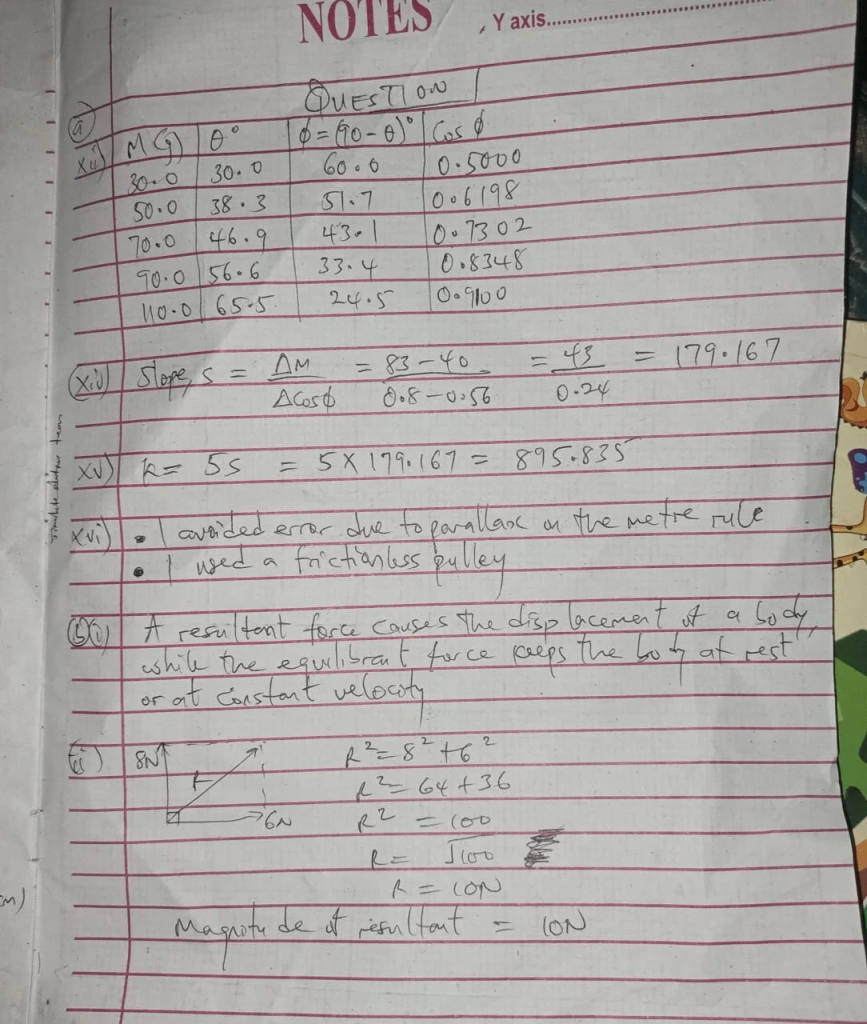 NOTES , Y axis......................
QUESTION
(a)
xii) M(g) θ° φ=(90-θ)° Cos φ
30.0 30.0 60.0 0.5000
50.0 38.3 51.7 0.6198
70.0 46.9 43.1 0.7302
90.0 56.6 33.4 0.8348
110.0 65.5 24.5 0.9100
xiv) Slope, s = ΔM/ΔCosφ = 83-40/0.8-0.56 = 43/0.24 = 179.167
xv) k = 5s = 5 X 179.167 = 895.835
xvi) • I avoided error due to parallax on the metre rule
• I used a frictionless pulley
(b)(i) A resultant force causes the displacement of a body,
while the equilibrant force keeps the body at rest
or at constant velocity
(ii) 8N R² = 8² + 6²
R² = 64 + 36
6N R² = 100
R = √100
R = 10N
Magnitude of resultant = 10N